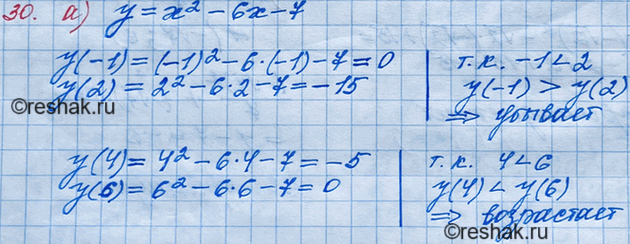 30. а) y = x² - 6x - 7
y(-1) = (-1)² - 6·(-1) - 7 = 0 | т.к. -1 < 2
y(2) = 2² - 6·2 - 7 = -15 | y(-1) > y(2)
⇒ убывает
y(4) = 4² - 6·4 - 7 = -5 | т.к. 4 < 6
y(6) = 6² - 6·6 - 7 = 0 | y(4) < y(6)
⇒ возрастает
©reshak.ru
©reshak.ru